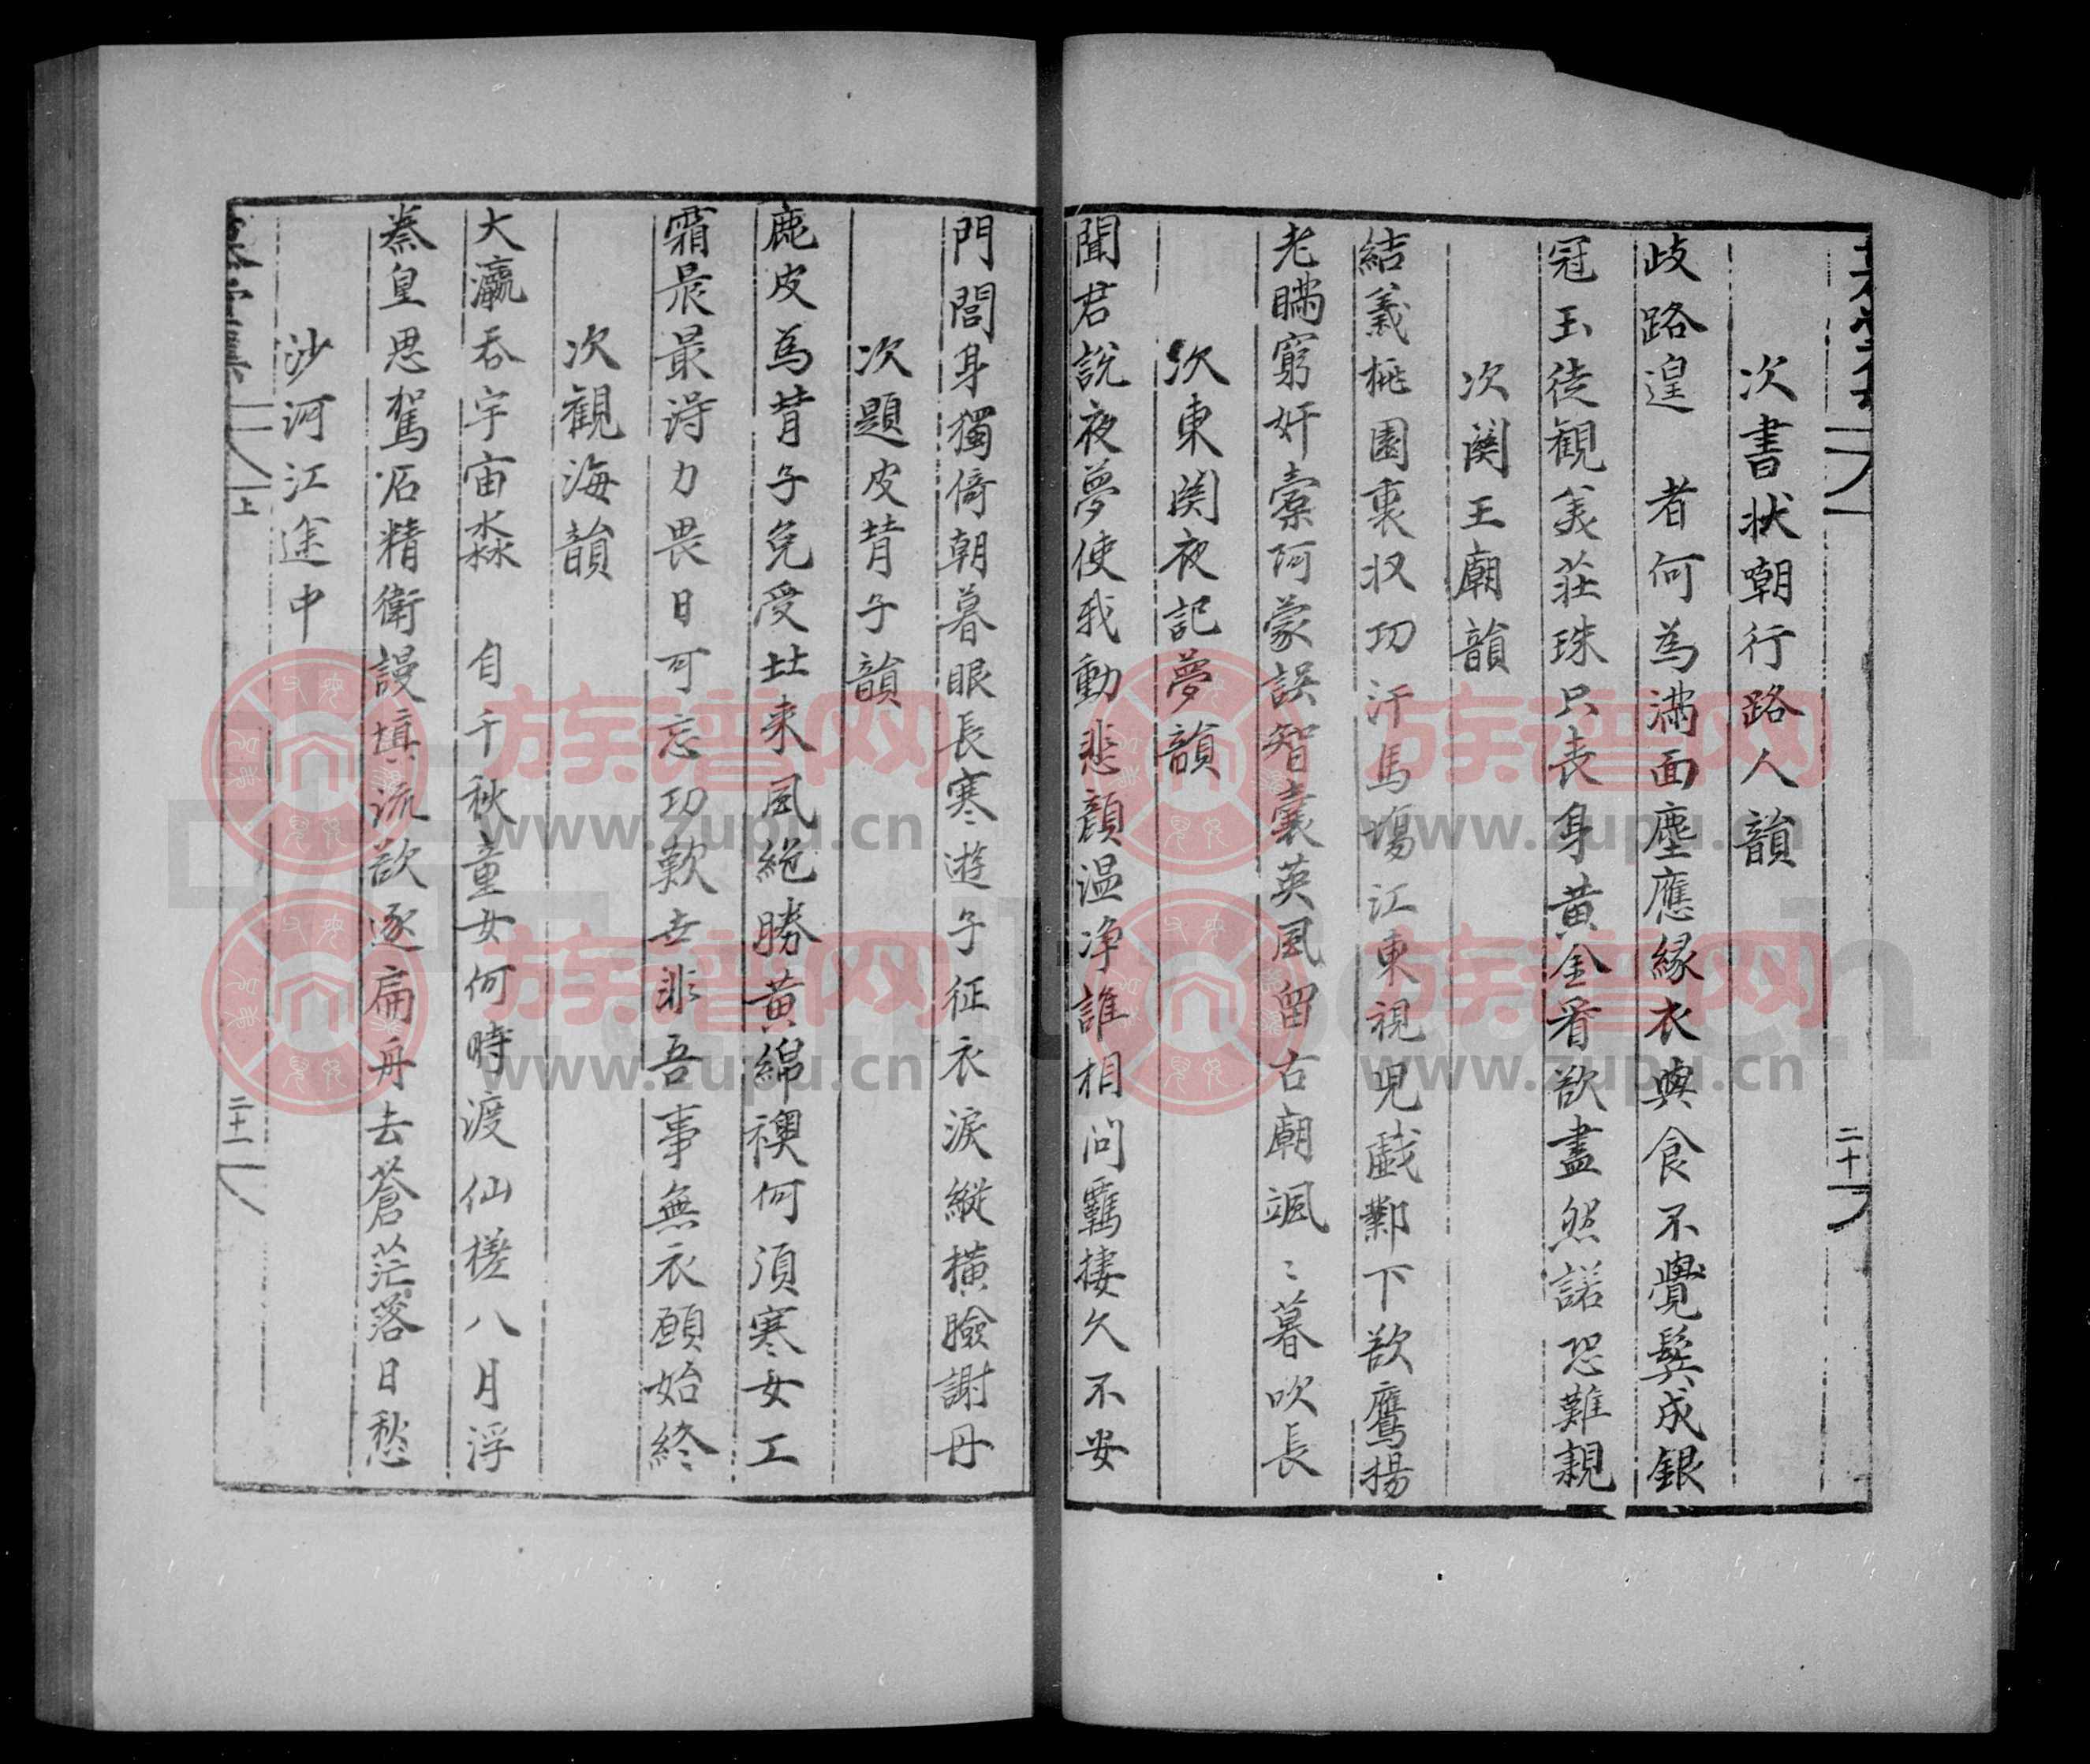 次書狀嘲行路人韻
歧路遑 者何為滿面塵應緣衣與食不覺鬂成銀
冠玉徒觀美莊珠只喪身黃金看欲盡然諾恐難親
次関王廟韻
結義桃園裏収功汗馬塲江東視児戱鄴下欲鷹揚
老瞞窮奸槖阿蒙誤智囊英風留古廟颯〻暮吹長
次東関夜記夢韻
聞君說夜夢使我動悲顔温净誰相問羈棲久不安
二十
門閭身獨倚朝暮眼長寒遊子征衣淚縱橫臉謝丹
次題皮背子韻
鹿皮為背子免受北来風絶勝黃綿襖何須寒女工
霜晨最淂力畏日可忘功軟世非吾事無衣願始終
次觀海韻
大瀛吞宇宙淼 自千秋童女何時渡仙槎八月浮
秦皇思駕石精衛謾填流欲逐扁舟去蒼茫落日愁
沙河江途中
上
二十一
族谱网
www.zupu.cn
族谱网
www.zupu.cn
族谱网
www.zupu.cn
族谱网
www.zupu.cn